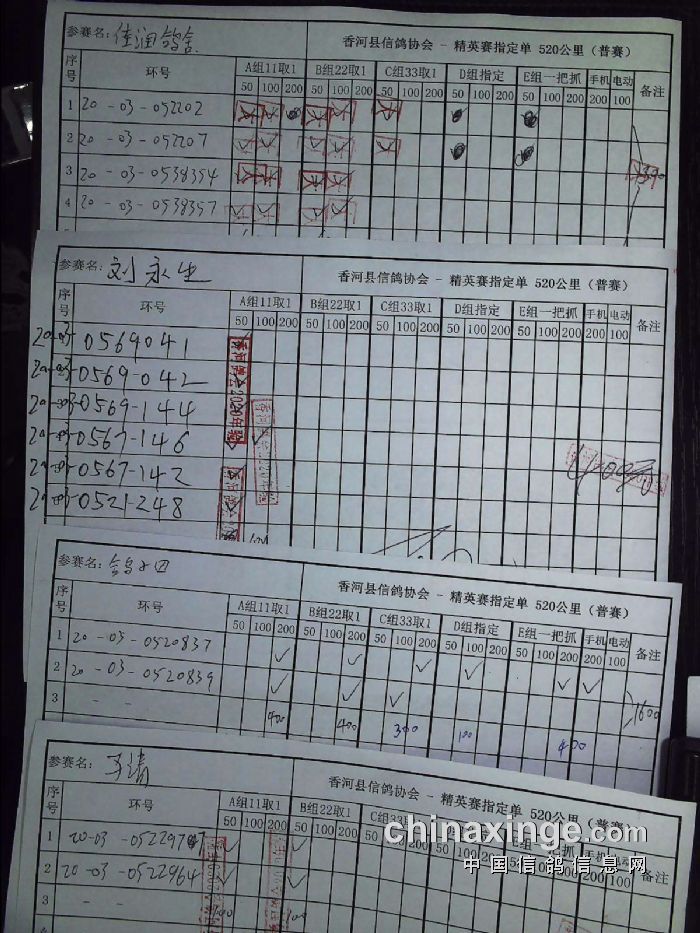 参赛名: 佳润鸽舍
香河县信鸽协会 - 精英赛指定单 520公里 (普赛)
序号 环号 A组11取1 B组22取1 C组33取1 D组指定 E组一把抓 手机 电动 备注
50 100 200 50 100 200 50 100 200 50 100 200 50 100 200 200 100
1 20-03-052202
2 20-03-052207
3 20-03-0538354
4 20-03-0538357
参赛名: 刘永生
香河县信鸽协会 - 精英赛指定单 520公里 (普赛)
序号 环号 A组11取1 B组22取1 C组33取1 D组指定 E组一把抓 手机 电动 备注
50 100 200 50 100 200 50 100 200 50 100 200 50 100 200 200 100
20-03-0569041
20-03-0569-042
20-03-0569-144
20-03-0567-146
20-03-0567-142
20-03-0521-248
参赛名:
香河县信鸽协会 - 精英赛指定单 520公里 (普赛)
序号 环号 A组11取1 B组22取1 C组33取1 D组指定 E组一把抓 手机 电动 备注
50 100 200 50 100 200 50 100 200 50 100 200 50 100 200 200 100
1 20-03-0520837 ✓ ✓ ✓ ✓
2 20-03-0520839 ✓ ✓ ✓ ✓ ✓ 1600
3 - - 400 400 300 100 400
参赛名:
香河县信鸽协会 - 精英赛指定单 520公里 (普赛)
序号 环号 A组11取1 B组22取1 C组33取1 D组指定 E组一把抓 手机 电动 备注
50 100 200 50 100 200 50 100 200 50 100 200 50 100 200 200 100
1 20-03-
2 20-03-0522964
3 - -
chinaxinge.com
中国信鸽信息网